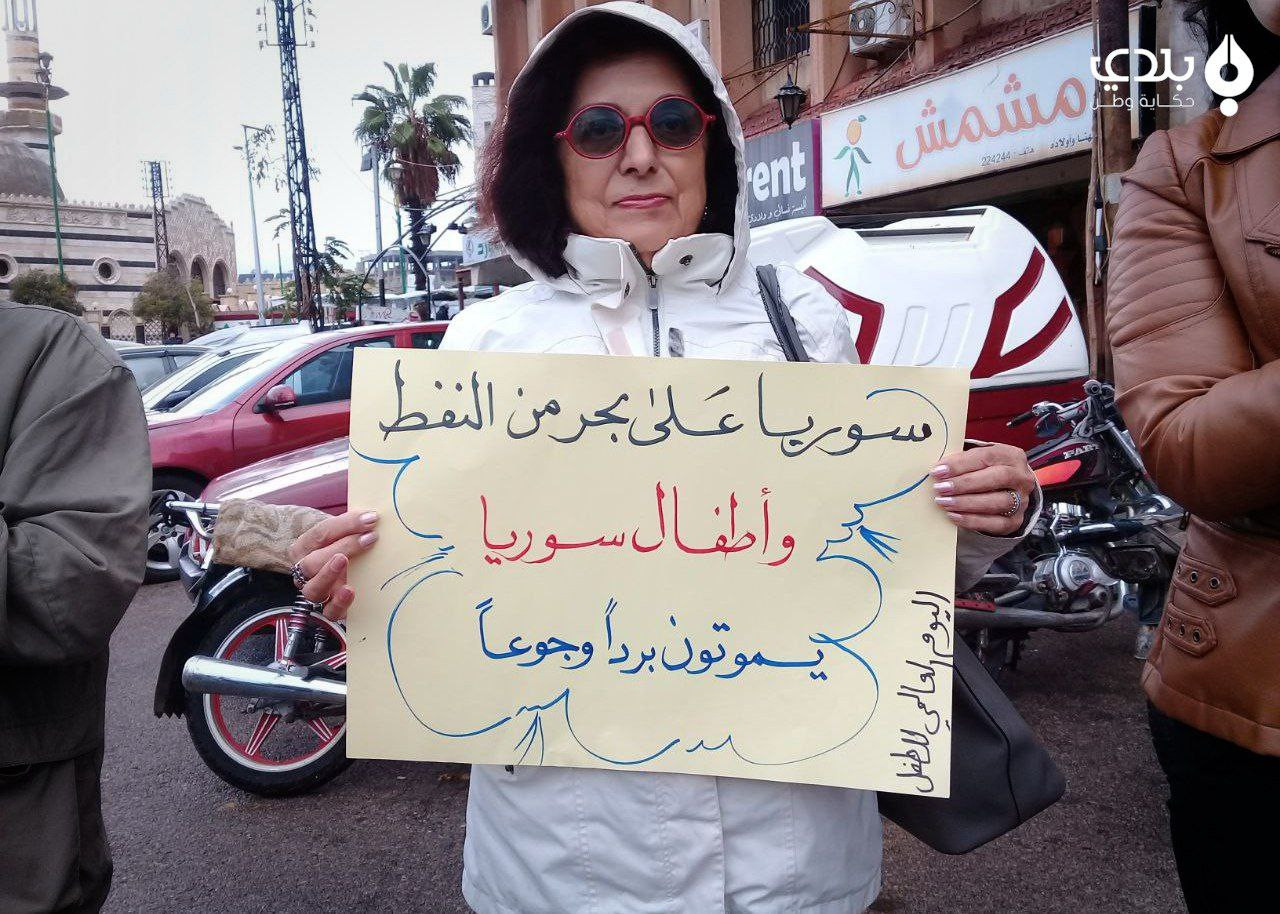 بلدي
حكاية وطن
مشمش
هاتف: 224244
rent
سوريا عَلىٰ بحر من النفط
وأطفال سوريا
يموتون برداً وجوعاً
اليوم العالمي للطفل